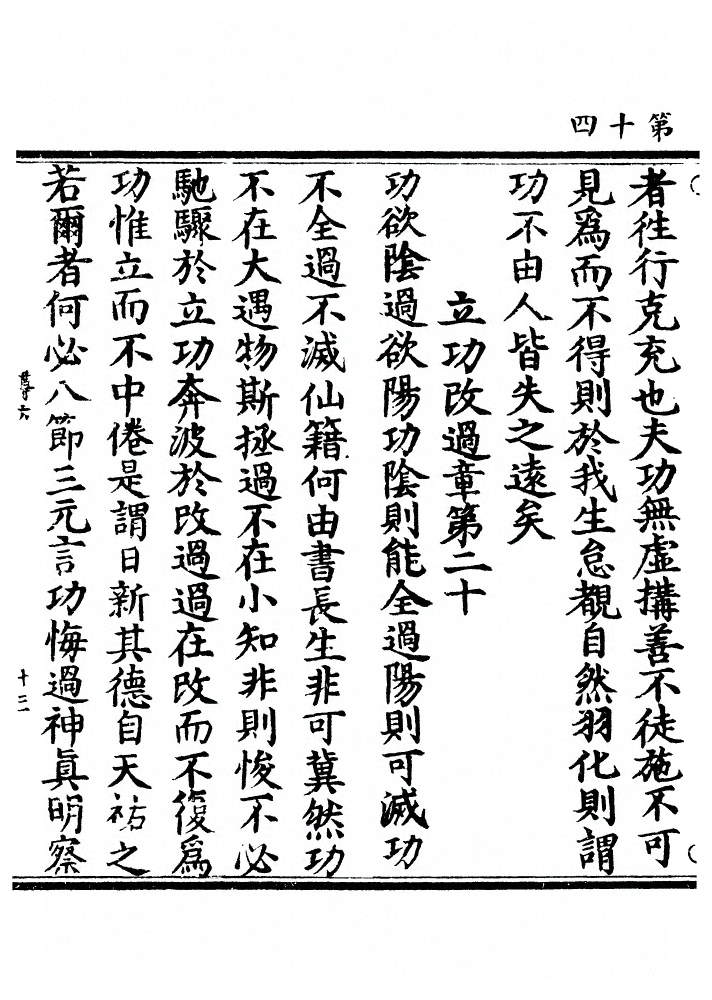 第十四
者徃行克充也夫功無虛搆善不徒施不可
見爲而不得則於我生怠覩自然羽化則謂
功不由人皆失之遠矣
立功改過章第二十
功欲陰過欲陽功陰則能全過陽則可滅功
不全過不滅仙籍何由書長生非可冀然功
不在大遇物斯拯過不在小知非則悛不必
馳驟於立功奔波於改過過在改而不復爲
功惟立而不中倦是謂日新其德自天祐之
若爾者何必八節三元言功悔過神眞明察
十三